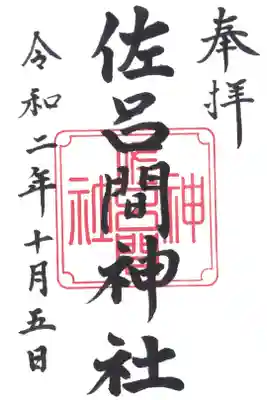 奉拝
佐呂間神社
令和二年十月五日
佐呂間神社